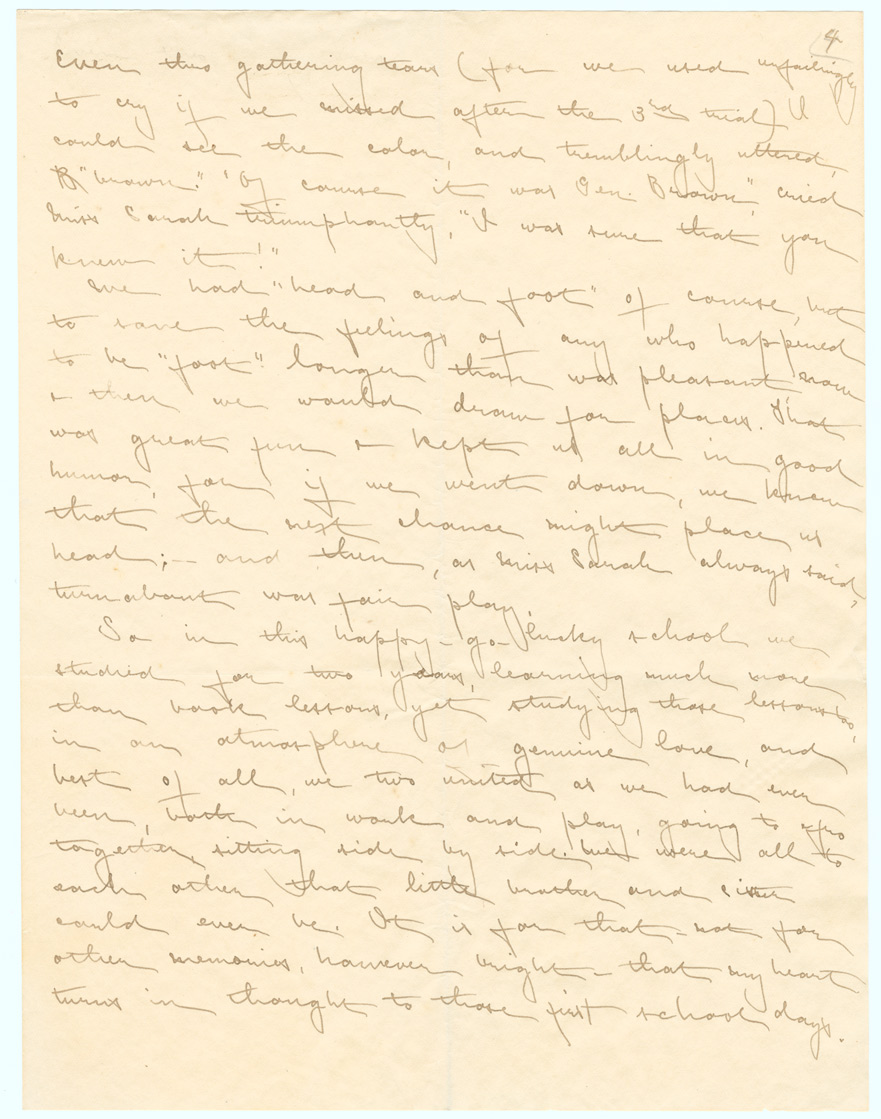 4
Even two gathering tears (for we used unfailingly
to cry if we missed after the 3rd trial) I
could see the color, and tremblingly uttered,
"brown." "Of course it was Gen. Brown", cried
Miss Sarah triumphantly, "I was sure that you
knew it!"
We had "head and foot" of course, but
to save the feelings of any who happened
to be "foot" longer than was pleasant, now
& then we would draw for places. That
was great fun & kept us all in good
humor, for if we went down, we knew
that the next chance might place us
head; — and then, as Miss Sarah always said,
turnabout was fair play.
So in this happy-go-lucky school we
studied for two years, learning much more
than book lessons, yet studying those lessons too,
in an atmosphere of genuine love, and
best of all, we two united as we had ever
been, both in work and play, going to & fro
together, sitting side by side. We were all to
each other that little brother and sister
could ever be. It is for that – not for
other memories, however bright – that my heart
turns in thought to those first school days.